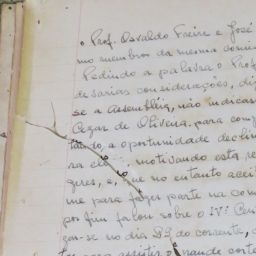 o Prof. Osvaldo Freire e José
mo membros da mesma comis
Pedindo a palavra o Prof
de várias considerações, di
se a Assembléia, não indicas
Cezar de Oliveira, para comp
tando, a oportunidade declin
ra ele motivando esta re
e, que no entanto acei
me para fazer parte na com
por fim falou sobre o IVº Cen
zar-se no dia 22 do corrente,
assistir o grande corte